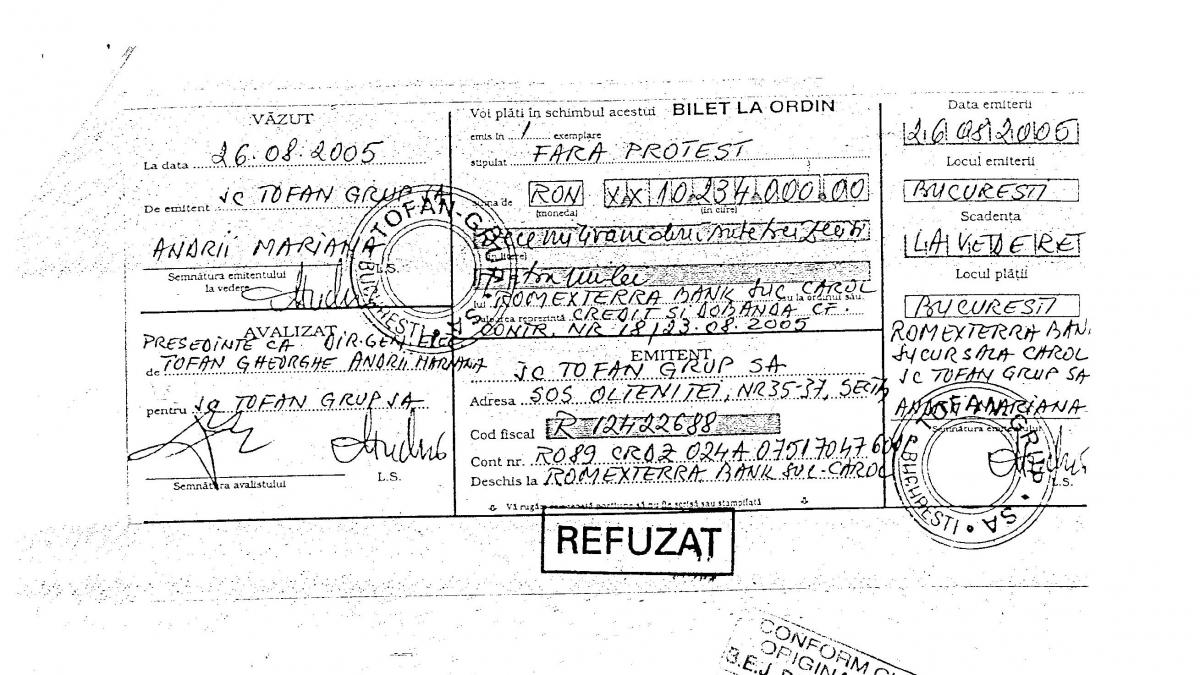 VĂZUT
La data 26.08.2005
De emitent SC TOFAN GRUP SA
ANDRII MARIANA
Semnătura emitentului
la vedere
L.S.
AVALIZAT
PRESEDINTE CA DIR.GEN.
de TOFAN GHEORGHE ANDRII MARIANA
pentru SC TOFAN GRUP SA
Semnătura avalistului
L.S.
Voi plăti în schimbul acestui BILET LA ORDIN
emis în 1 exemplare
stipulat FARA PROTEST
RON XX10.234.000.00
(moneda) (în cifre)
ROMEXTERRA BANK SUC CAROL
sau la ordinul său.
reprezintă CREDIT SI DOBANDA CF.
CONTR. NR 18/23.08.2005
EMITENT
SC TOFAN GRUP SA
Adresa SOS OLTENITEI, NR 35-37, SECT 4
Cod fiscal R 12422688
Cont nr. RO89 CRDZ 024A 07517047
Deschis la ROMEXTERRA BANK SUC-CAROL
Data emiterii
26082005
Locul emiterii
BUCURESTI
Scadența
LA VEDERE
Locul plății
BUCURESTI
ROMEXTERRA BAN
SUCURSALA CAROL
SC TOFAN GRUP SA
MARIANA
L.S.
TOFAN-GRUP SA
BUCUREȘTI
TOFAN GRUP • SA •
BUCUREȘTI
REFUZAT
CONFORM CU
ORIGINA
B.E.J.